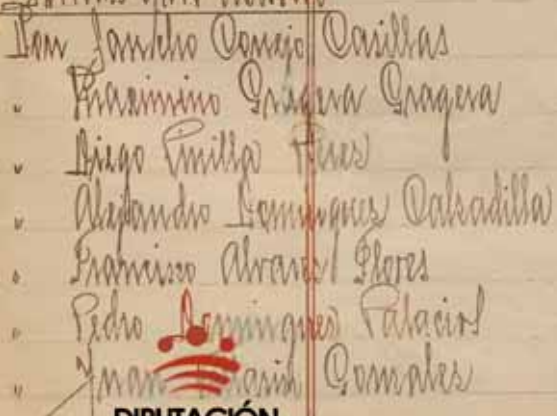 Don Juan Conejo Casillas
" Maximino Gragera Gragera
" Diego Pinilla
" Alejandro Domingues Calsadilla
" Francisco Alvares Flores
" Pedro Domingues Palacios
" Juan Gonzales
DIPUTACIÓN